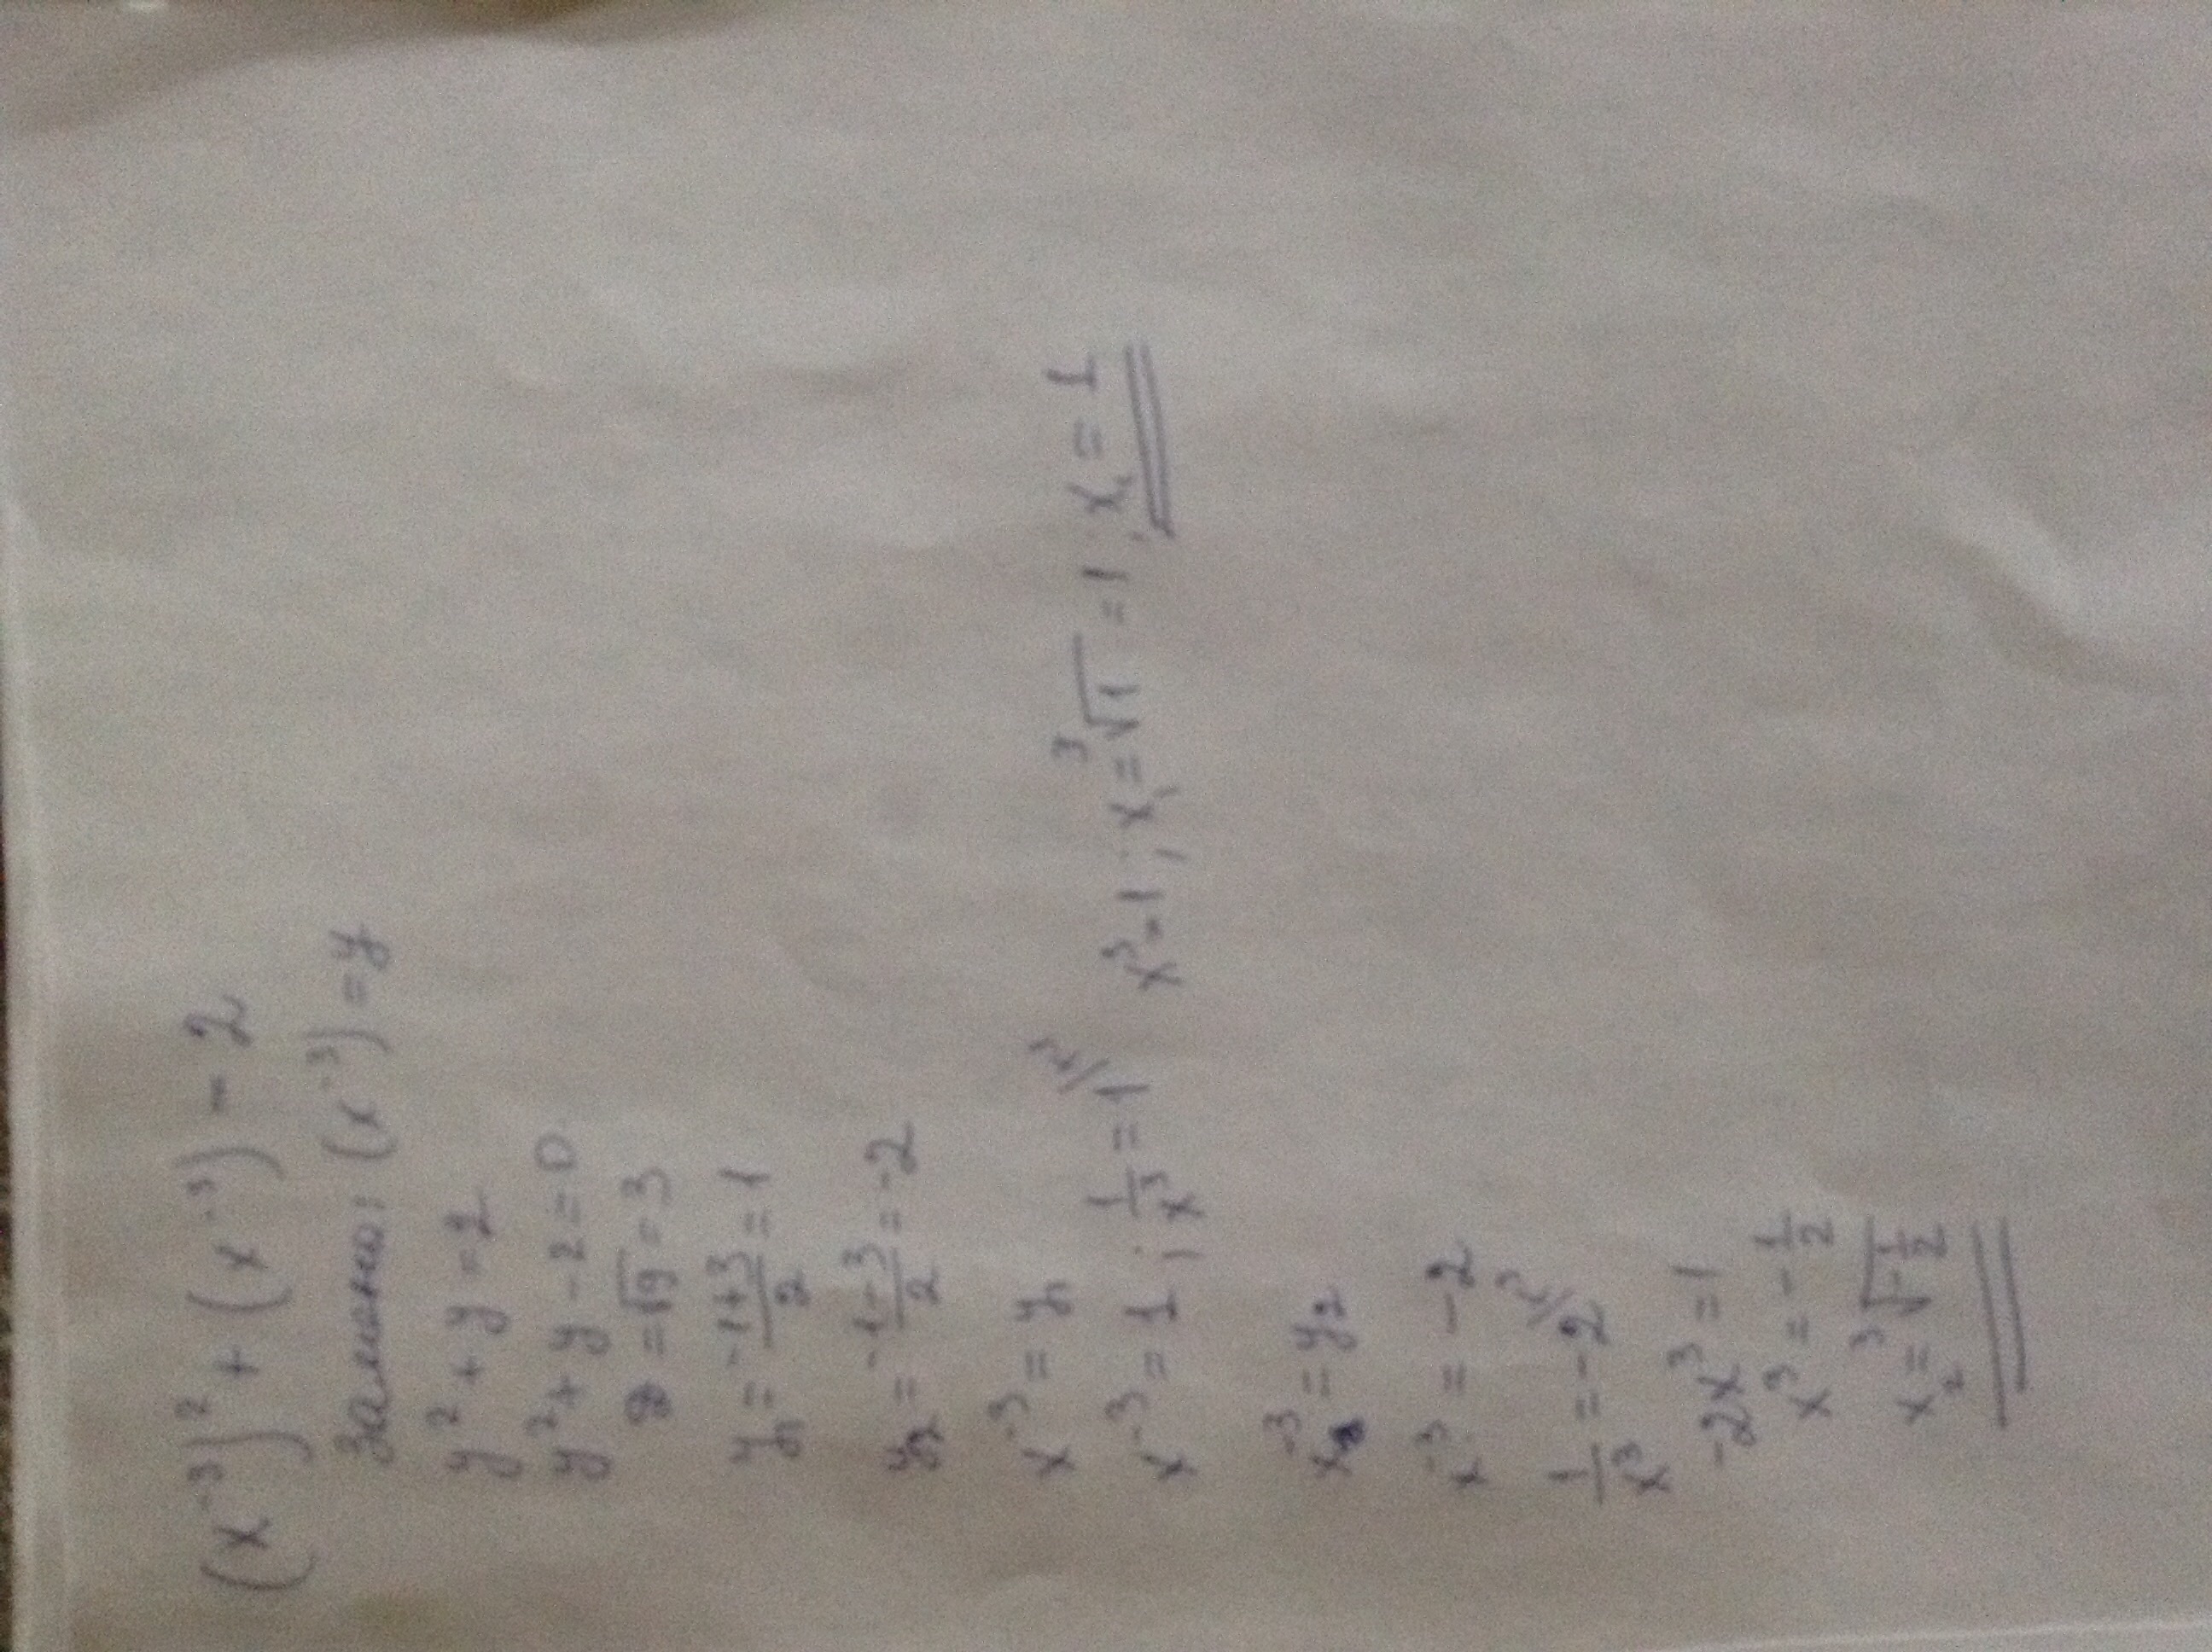 (x⁻³)² + (x⁻³) = 2
Замена: (x⁻³) = y
y² + y = 2
y² + y - 2 = 0
D = √9 = 3
y₁ = (-1+3)/2 = 1
y₂ = (-1-3)/2 = -2
x⁻³ = y₁
x⁻³ = 1 ; 1/x³ = 1 x³ = 1 ; x₁ = ³√1 = 1 ; x₁ = 1
x⁻³ = y₂
x⁻³ = -2
1/x³ = -2
-2x³ = 1
x³ = -1/2
x₂ = ³√(-1/2)